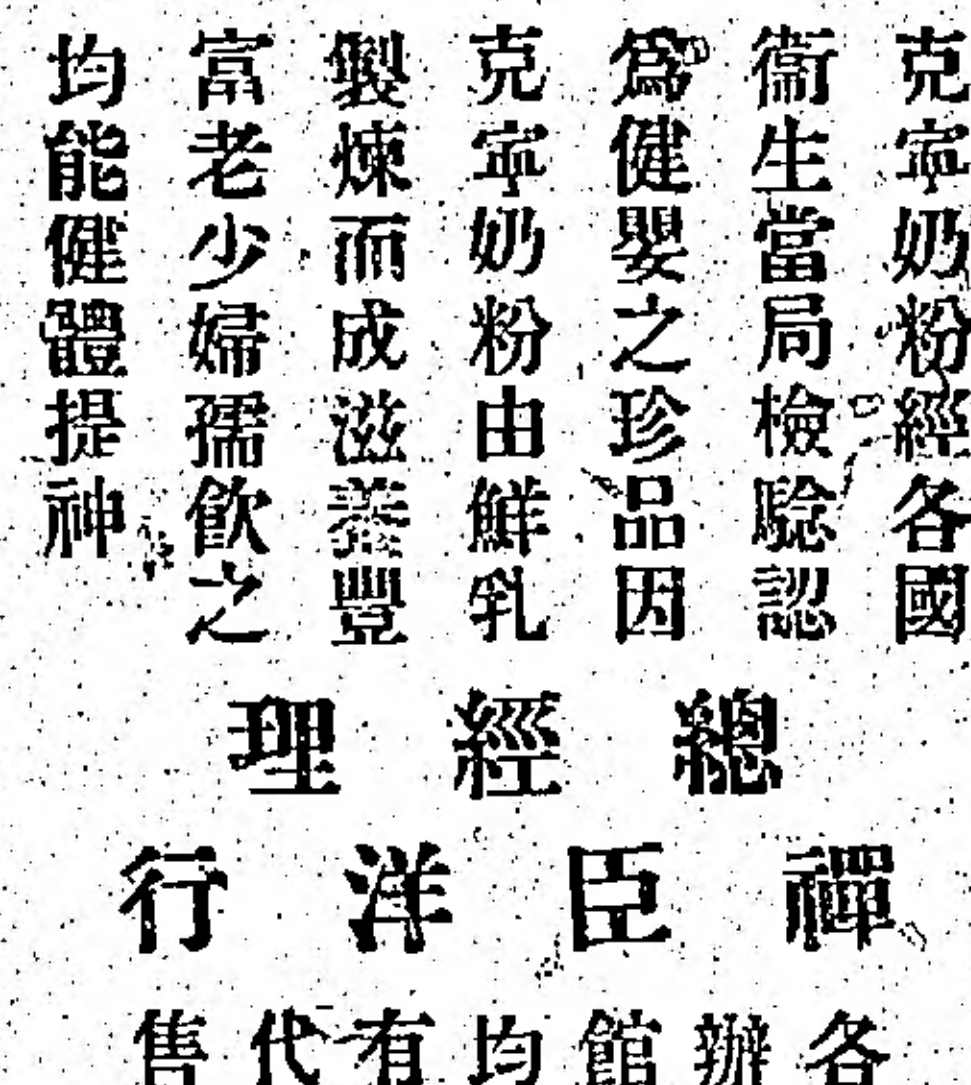 克寧奶粉經各國
衞生當局檢驗認
爲健嬰之珍品因
克寧奶粉由鮮乳
製煉而成滋養豐
富老少婦孺飲之
均能健體提神
總經理
禪臣洋行
各辦館均有代售